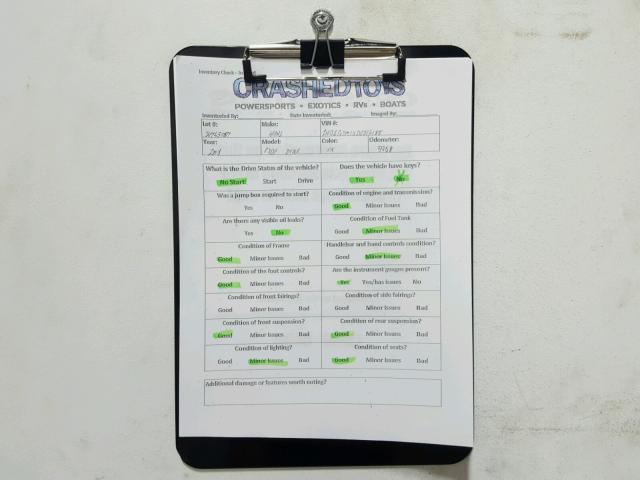 Inventory Check -
CRASHEDTOYS
POWERSPORTS • EXOTICS • RVs • BOATS
Inventoried By: Date Inventoried: Imaged By:
Lot #: Make: VIN #:
Year: Model: Color: Odometer:
What is the Drive Status of the vehicle? Does the vehicle have keys?
No Start Start Drive Yes No
Was a jump box required to start? Condition of engine and transmission?
Yes No Good Minor Issues Bad
Are there any visible oil leaks? Condition of Fuel Tank
Yes No Good Minor Issues Bad
Condition of Frame Handlebar and hand controls condition?
Good Minor Issues Bad Good Minor Issues Bad
Condition of the foot controls? Are the instrument gauges present?
Good Minor Issues Bad Yes Yes/has issues No
Condition of front fairings? Condition of side fairings?
Good Minor Issues Bad Good Minor Issues Bad
Condition of front suspension? Condition of rear suspension?
Good Minor Issues Bad Good Minor Issues Bad
Condition of lighting? Condition of seats?
Good Minor Issues Bad Good Minor Issues Bad
Additional damage or features worth noting?